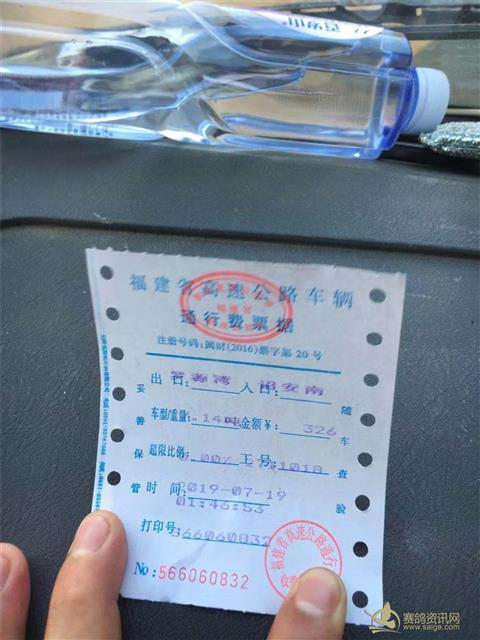 福建省高速公路车辆
通行费票据
注册号码:闽财(2016)票字第20号
出口: 入口: 诏安南
车型/重量: .14吨 金额¥: 326
超限比例: 0.00% 工号: 1018
时间: 2019-07-19
01:46:53
打印号: 566060832
No:566060832
妥善保管
随车查验
福建省高速公路通行
赛鸽资讯网
www.saige.com